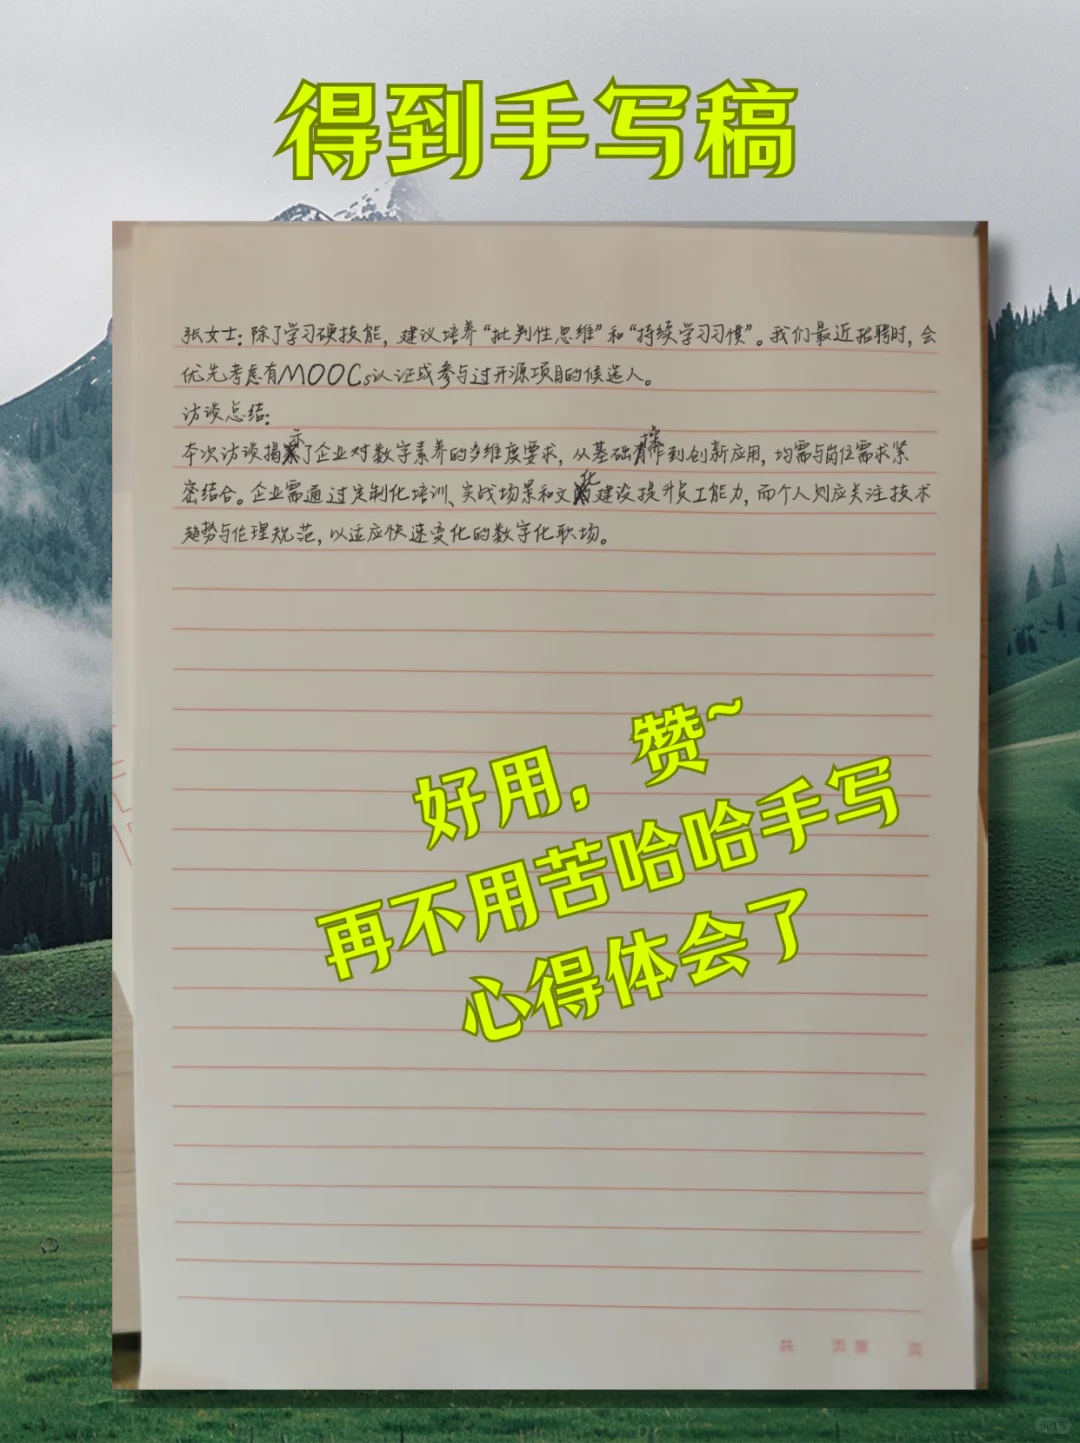 得到手写稿
张女士：除了学习硬技能，建议培养“批判性思维”和“持续学习习惯”。我们最近招聘时，会
优先考虑有MOOCs认证或参与过开源项目的候选人。
访谈总结：
本次访谈揭示了企业对数字素养的多维度要求，从基础操作到创新应用，均需与岗位需求紧
密结合。企业需通过定制化培训、实战场景和文化建设提升员工能力，而个人则应关注技术
趋势与伦理规范，以适应快速变化的数字化职场。
好用，赞~
再不用苦哈哈手写
心得体会了
共 页 第 页